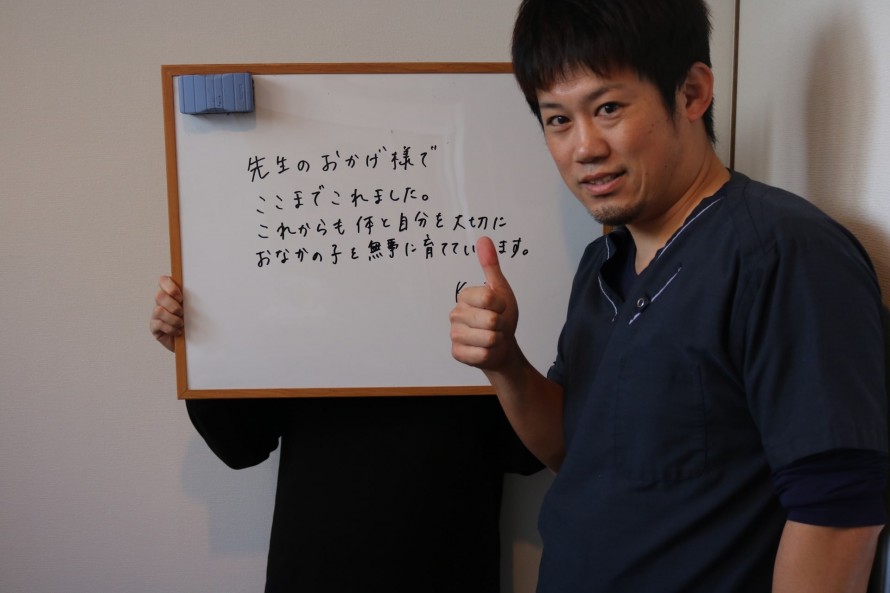 先生のおかげ様で
ここまでこれました。
これからも体と自分を大切に
おなかの子を無事に育てていきます。